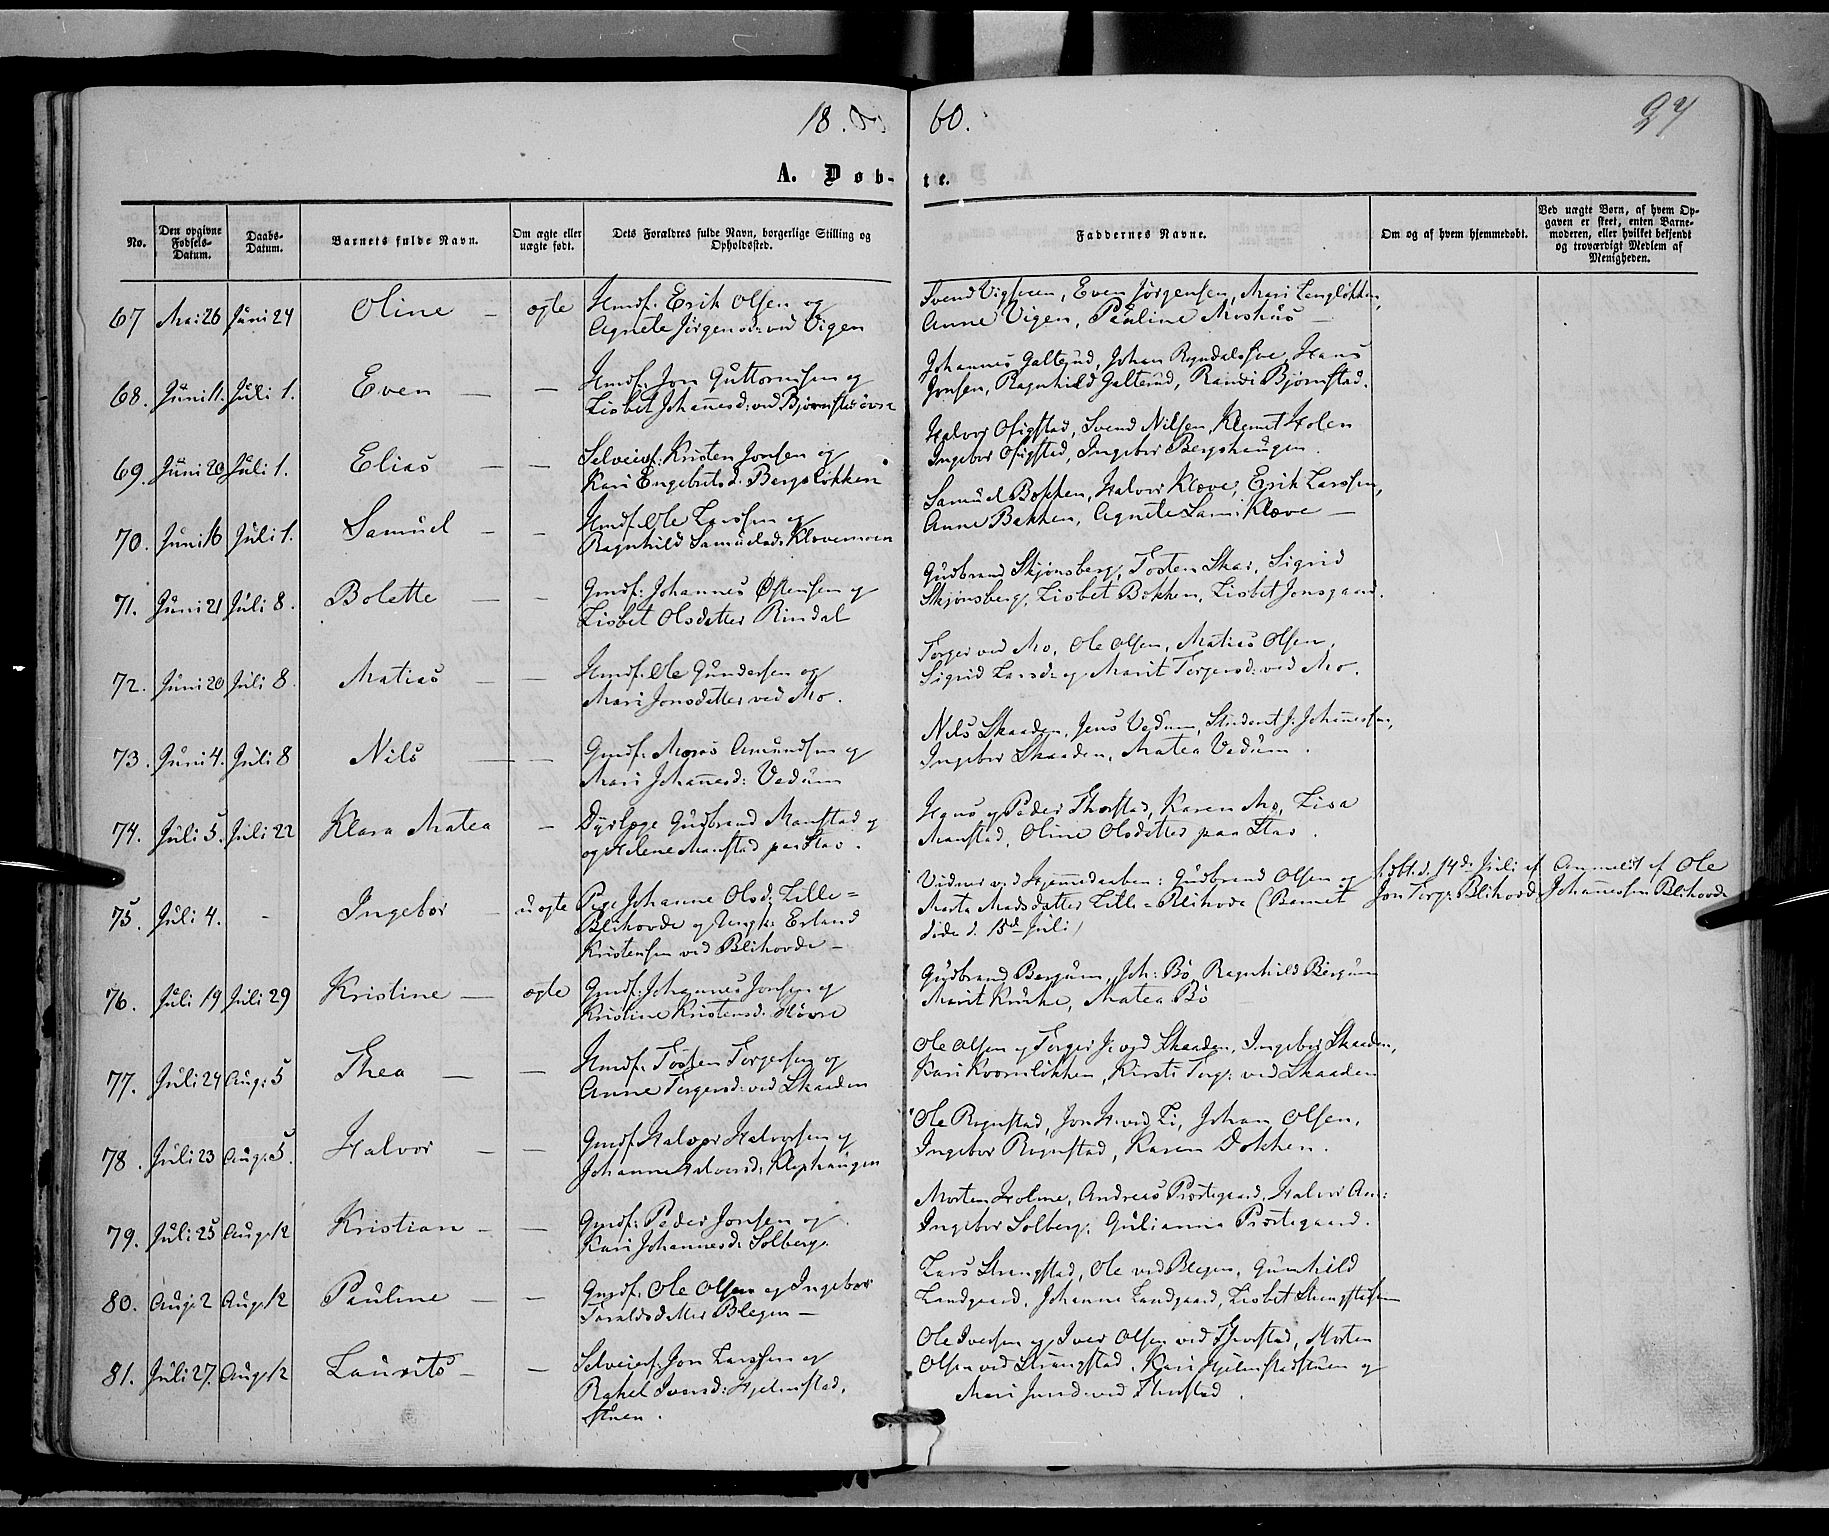 18
60.
A. Døb-
te.
No.
Den opgivne Fødsels-Datum.
Daabs-Datum.
Barnets fulde Navn.
Om ægte eller uægte født.
Dets Forældres fulde Navn, borgerlige Stilling og Opholdssted.
Faddernes Navne.
Om og af hvem hjemmedøbt.
Ved uægte Børn, af hvem Opgaven er skeet, enten Barnemoderen, eller hvilket bekjendt og troværdigt Medlem af Menigheden.
67 Mai 26 Juni 24 Oline – ægte Hmdf: Erik Olsen og
Agnete Jörgensd: ved Vigen
Svend Vigsveen, Even Jörgensen, Mari Langløkken,
Anne Vigen, Pauline Moshus –
68. Juni 11. Juli 1. Even – – Hmdf: Jon Guttormsen og
Lisbet Johannesd: ved Bjørnstad övre
Johannes Galterud, Johan, Hans
Jonsen, Ragnhild Galterud, Randi Bjørnstad.
69. Juni 20 Juli 1. Elias – – Selveierf: Kristen Jonsen og
Kari Engebretsd. Bergsløkken
Halvor Ofigstad, Svend Nilsen, Klemet Holen
Ingebor Ofigstad, Ingebor Bergshaugen.
70. Juni 16 Juli 1. Samuel – – Hmdf: Ole Larssen og
Ragnhild Samuelsd: Klevemoen
Samuel Bakken, Halvor Kleve, Erik Larssen,
Anne Bakken, Agnete Kleve –
71. Juni 21 Juli 8. Bolette – – Gmdf: Johannes Östensen og
Lisbet Olsdatter Rindal
Gudbrand Skjønsberg, Tosten Skar, Sigrid
Skjønsberg, Lisbet Bakken, Lisbet Jonsgaard.
72. Juni 20 Juli 8. Matias – – Hmdf: Ole Gundersen og
Mari Jonsdatter ved Mo.
Torger ved Mo, Ole Olsen, Matias Olsen,
Sigrid Larsd: og Marit Torgersd: ved Mo.
73. Juni 4. Juli 8 Nils – – Gmdf: Mons Amundsen og
Mari Johannesd: Vedum
Nils Skaaden, Jens Vedum, Student J. Johannessen,
Ingebor Skaaden, Matea Vedum.
74. Juli 5. Juli 22 Klara Matea – Dyrlæge Gudbrand Manstad og
og Helene Manstad paa Stav.
Hans og Peder Thorstad, Karen Mo, Lisa
Manstad, Oline Olsdatter paa Stav.
75. Juli 4. – Ingebor – uægte Pige Johanne Olsd: Lille-
Blihovde og Ungk: Erland
Kristensen ved Blihovde –
Vidner ved Hjemmedaaben: Gudbrand Olsen og
Marta Madsdatter Lille-Blihovde (Barnet
döde d. 15de Juli)
döbt d. 14de Juli af
Jon Torg: Blihovde
Anmeldt af Ole
Johannessen Blihovde
76. Juli 19 Juli 29 Kristine – ægte Gmdf: Johannes Jonsen og
Kristine Kristensd. Hövre
Gudbrand Bergum, Joh: Bö, Ragnhild Bergum
Marit Krukke, Matea Bö
77. Juli 24 Aug: 5 Thea – – Hmdf: Tosten Torgersen og
Anne Torgersd: ved Skaaden
Ole Olsen og Torger J: ved Skaaden, Ingebor Skaaden,
Kari Kvernløkken, Kirsti Torg: ved Skaaden
78. Juli 23 Aug: 5. Halvor – – Gmdf: Halvor Halvorsen og
Johanne Halvorsd: Klephaugen
Ole Rognstad, Jon H: ved Li, Johan Olsen,
Ingebor Rognstad, Karen Dokken.
79. Juli 25 Aug: 12 Kristian – – Gmdf: Peder Jonsen og
Kari Johannesd. Solberg.
Morten Holme, Andreas Præstegaard, Halvor An:
Ingebor Solberg, Gulianna Præstegaard.
80. Aug: 2 Aug: 12 Pauline – – Gmdf: Ole Olsen og Ingebor
Taraldsdatter Blegen –
Lars Strangstad, Ole ved Blegen, Gunhild
Landgaard, Johanne Landgaard, Lisbet Strangstad
81. Juli 27. Aug: 12 Laurits – – Selveierf: Jon Larssen og
Rakel Iversd: Hjelmstad,
stuen.
Ole Iversen og Iver Olsen ved Thorstad, Morten
Olsen ved Strangstad, Kari Hjelmstadstuen og
Mari Jonsd: ved Thorstad.